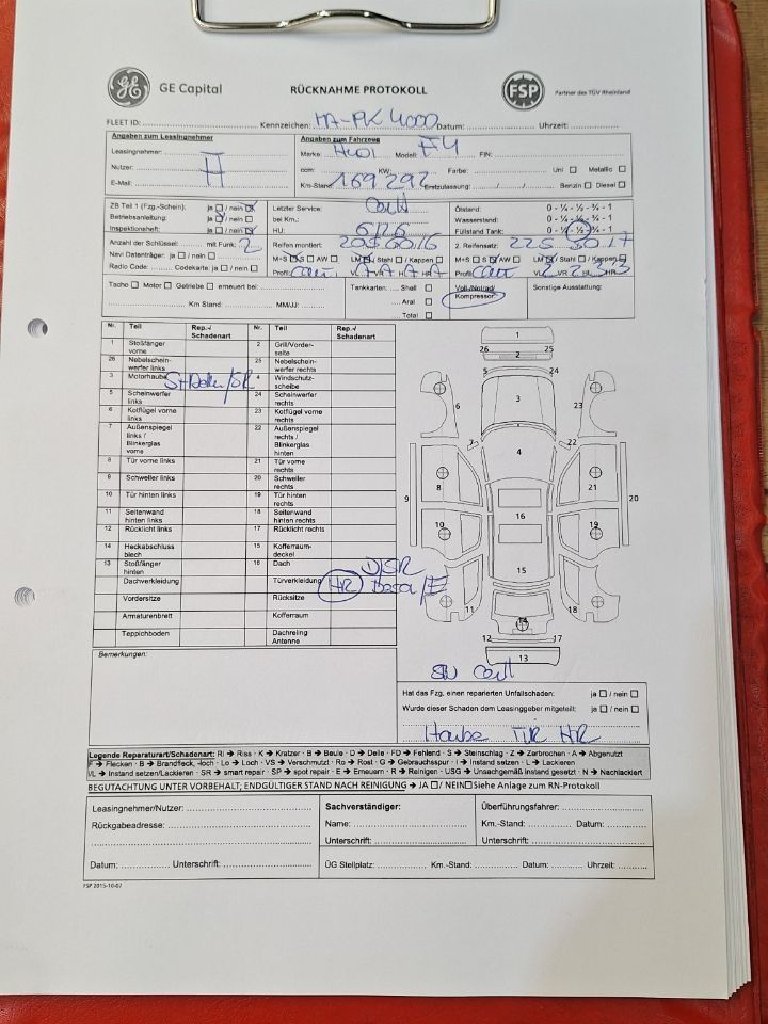 GE Capital RÜCKNAHME PROTOKOLL FSP Partner des TÜV Rheinland
FLEET ID: Kennzeichen: MA-PK 4000 Datum: Uhrzeit:
Angaben zum Leasingnehmer
Leasingnehmer:
Nutzer:
E-Mail:
Angaben zum Fahrzeug
Marke: Modell: FIN:
ccm: KW: Farbe: Uni Metallic
Km-Stand: 169292 Erstzulassung: / / Benzin Diesel
ZB Teil 1 (Fzg.-Schein): ja / nein
Betriebsanleitung: ja / nein
Inspektionsheft: ja / nein
Anzahl der Schlüssel: mit Funk: 2
Navi Datenträger: ja / nein
Radio Code: Codekarte: ja / nein
Letzter Service:
bei Km.:
HU:
Reifen montiert: 205 60 16
M+S S AW LM Stahl Kappen
Profil: VL VR HL HR
Ölstand: 0 - ¼ - ½ - ¾ - 1
Wasserstand: 0 - ¼ - ½ - ¾ - 1
Füllstand Tank: 0 - ¼ - ½ - ¾ - 1
2. Reifensatz: 225 50 17
M+S S AW LM Stahl Kappen
Profil: VL 2 VR 2 HL 3 HR 3
Tacho Motor Getriebe erneuert bei:
Km Stand: MM/JJ:
Tankkarten: Shell
Aral
Total
Voll-/Notrad/
Kompressor
Sonstige Ausstattung:
Nr. Teil Rep.-/ Schadenart Nr. Teil Rep.-/ Schadenart
1 Stoßfänger vorne 2 Grill/Vorderseite
26 Nebelscheinwerfer links 25 Nebelscheinwerfer rechts
3 Motorhaube 4 Windschutzscheibe
5 Scheinwerfer links 24 Scheinwerfer rechts
6 Kotflügel vorne links 23 Kotflügel vorne rechts
7 Außenspiegel links / Blinkerglas vorne 22 Außenspiegel rechts / Blinkerglas hinten
8 Tür vorne links 21 Tür vorne rechts
9 Schweller links 20 Schweller rechts
10 Tür hinten links 19 Tür hinten rechts
11 Seitenwand hinten links 18 Seitenwand hinten rechts
12 Rücklicht links 17 Rücklicht rechts
14 Heckabschlussblech 15 Kofferraumdeckel
13 Stoßfänger hinten 16 Dach
Dachverkleidung Türverkleidung HR
Vordersitze Rücksitze
Armaturenbrett Kofferraum
Teppichboden Dachreling Antenne
1
26 25
2
5 24
3
6 23
7 22
4
8 21
9 20
16
10 19
15
11 18
14
12 17
13
Bemerkungen:
Hat das Fzg. einen reparierten Unfallschaden: ja / nein
Wurde dieser Schaden dem Leasinggeber mitgeteilt: ja / nein
Haube TÜR HR
Legende Reparaturart/Schadenart: RI ➔ Riss · K ➔ Kratzer · B ➔ Beule · D ➔ Delle · FD ➔ Fehlend · S ➔ Steinschlag · Z ➔ Zerbrochen · A ➔ Abgenutzt
F ➔ Flecken · B ➔ Brandfleck, -loch · Lo ➔ Loch · VS ➔ Verschmutzt · Ro ➔ Rost · G ➔ Gebrauchsspur · I ➔ Instand setzen · L ➔ Lackieren
I/L ➔ Instand setzen/Lackieren · SR ➔ smart repair · SP ➔ spot repair · E ➔ Erneuern · R ➔ Reinigen · USG ➔ Unsachgemäß instand gesetzt · N ➔ Nachlackiert
BEGUTACHTUNG UNTER VORBEHALT; ENDGÜLTIGER STAND NACH REINIGUNG ➔ JA / NEIN Siehe Anlage zum RN-Protokoll
Leasingnehmer/Nutzer:
Rückgabeadresse:
Datum: Unterschrift:
Sachverständiger:
Name:
Unterschrift:
Überführungsfahrer:
Km.-Stand: Datum:
Unterschrift:
ÜG Stellplatz: Km.-Stand: Datum: Uhrzeit:
FSP 2015-10-02